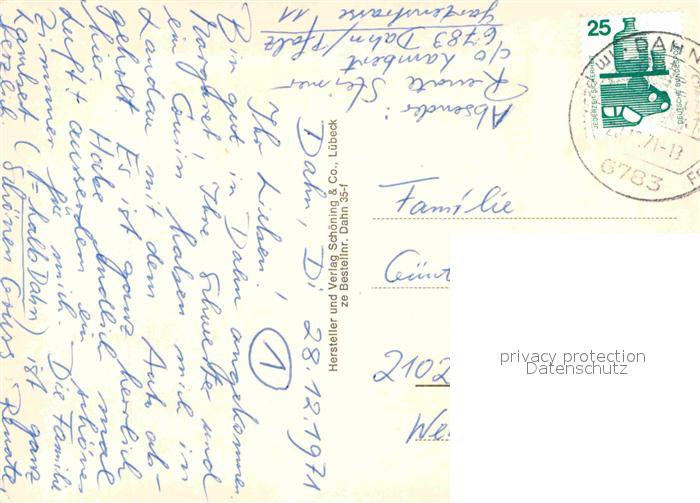 Absender:
Renate Steimer
c/o Lambert
6783 Dahn/Pfalz
Gartenstrasse 11
Dahn, Di 28.12.1971
Ihr Lieben!
1
Bin gut in Dahn angekommen.
Margret, Ihre Schwester und
ein Cousin haben mich in
Landau mit dem Auto ab-
geholt. Es ist ganz herrlich
hier. Habe endlich mal
Luft + ausserdem ein schönes
Zimmer für mich. Die Familie
Lambert (= halb Dahn) ist ganz
herzlich. Schönen Gruss Renate
Hersteller und Verlag Schöning & Co., Lübeck
ze Bestellnr. Dahn 35-f
25
JEDERZEIT SICHERHEIT
DEUTSCHE BUNDESPOST
DAHN
.71-13
6783
Familie
Günt
2102
We
privacy protection
Datenschutz